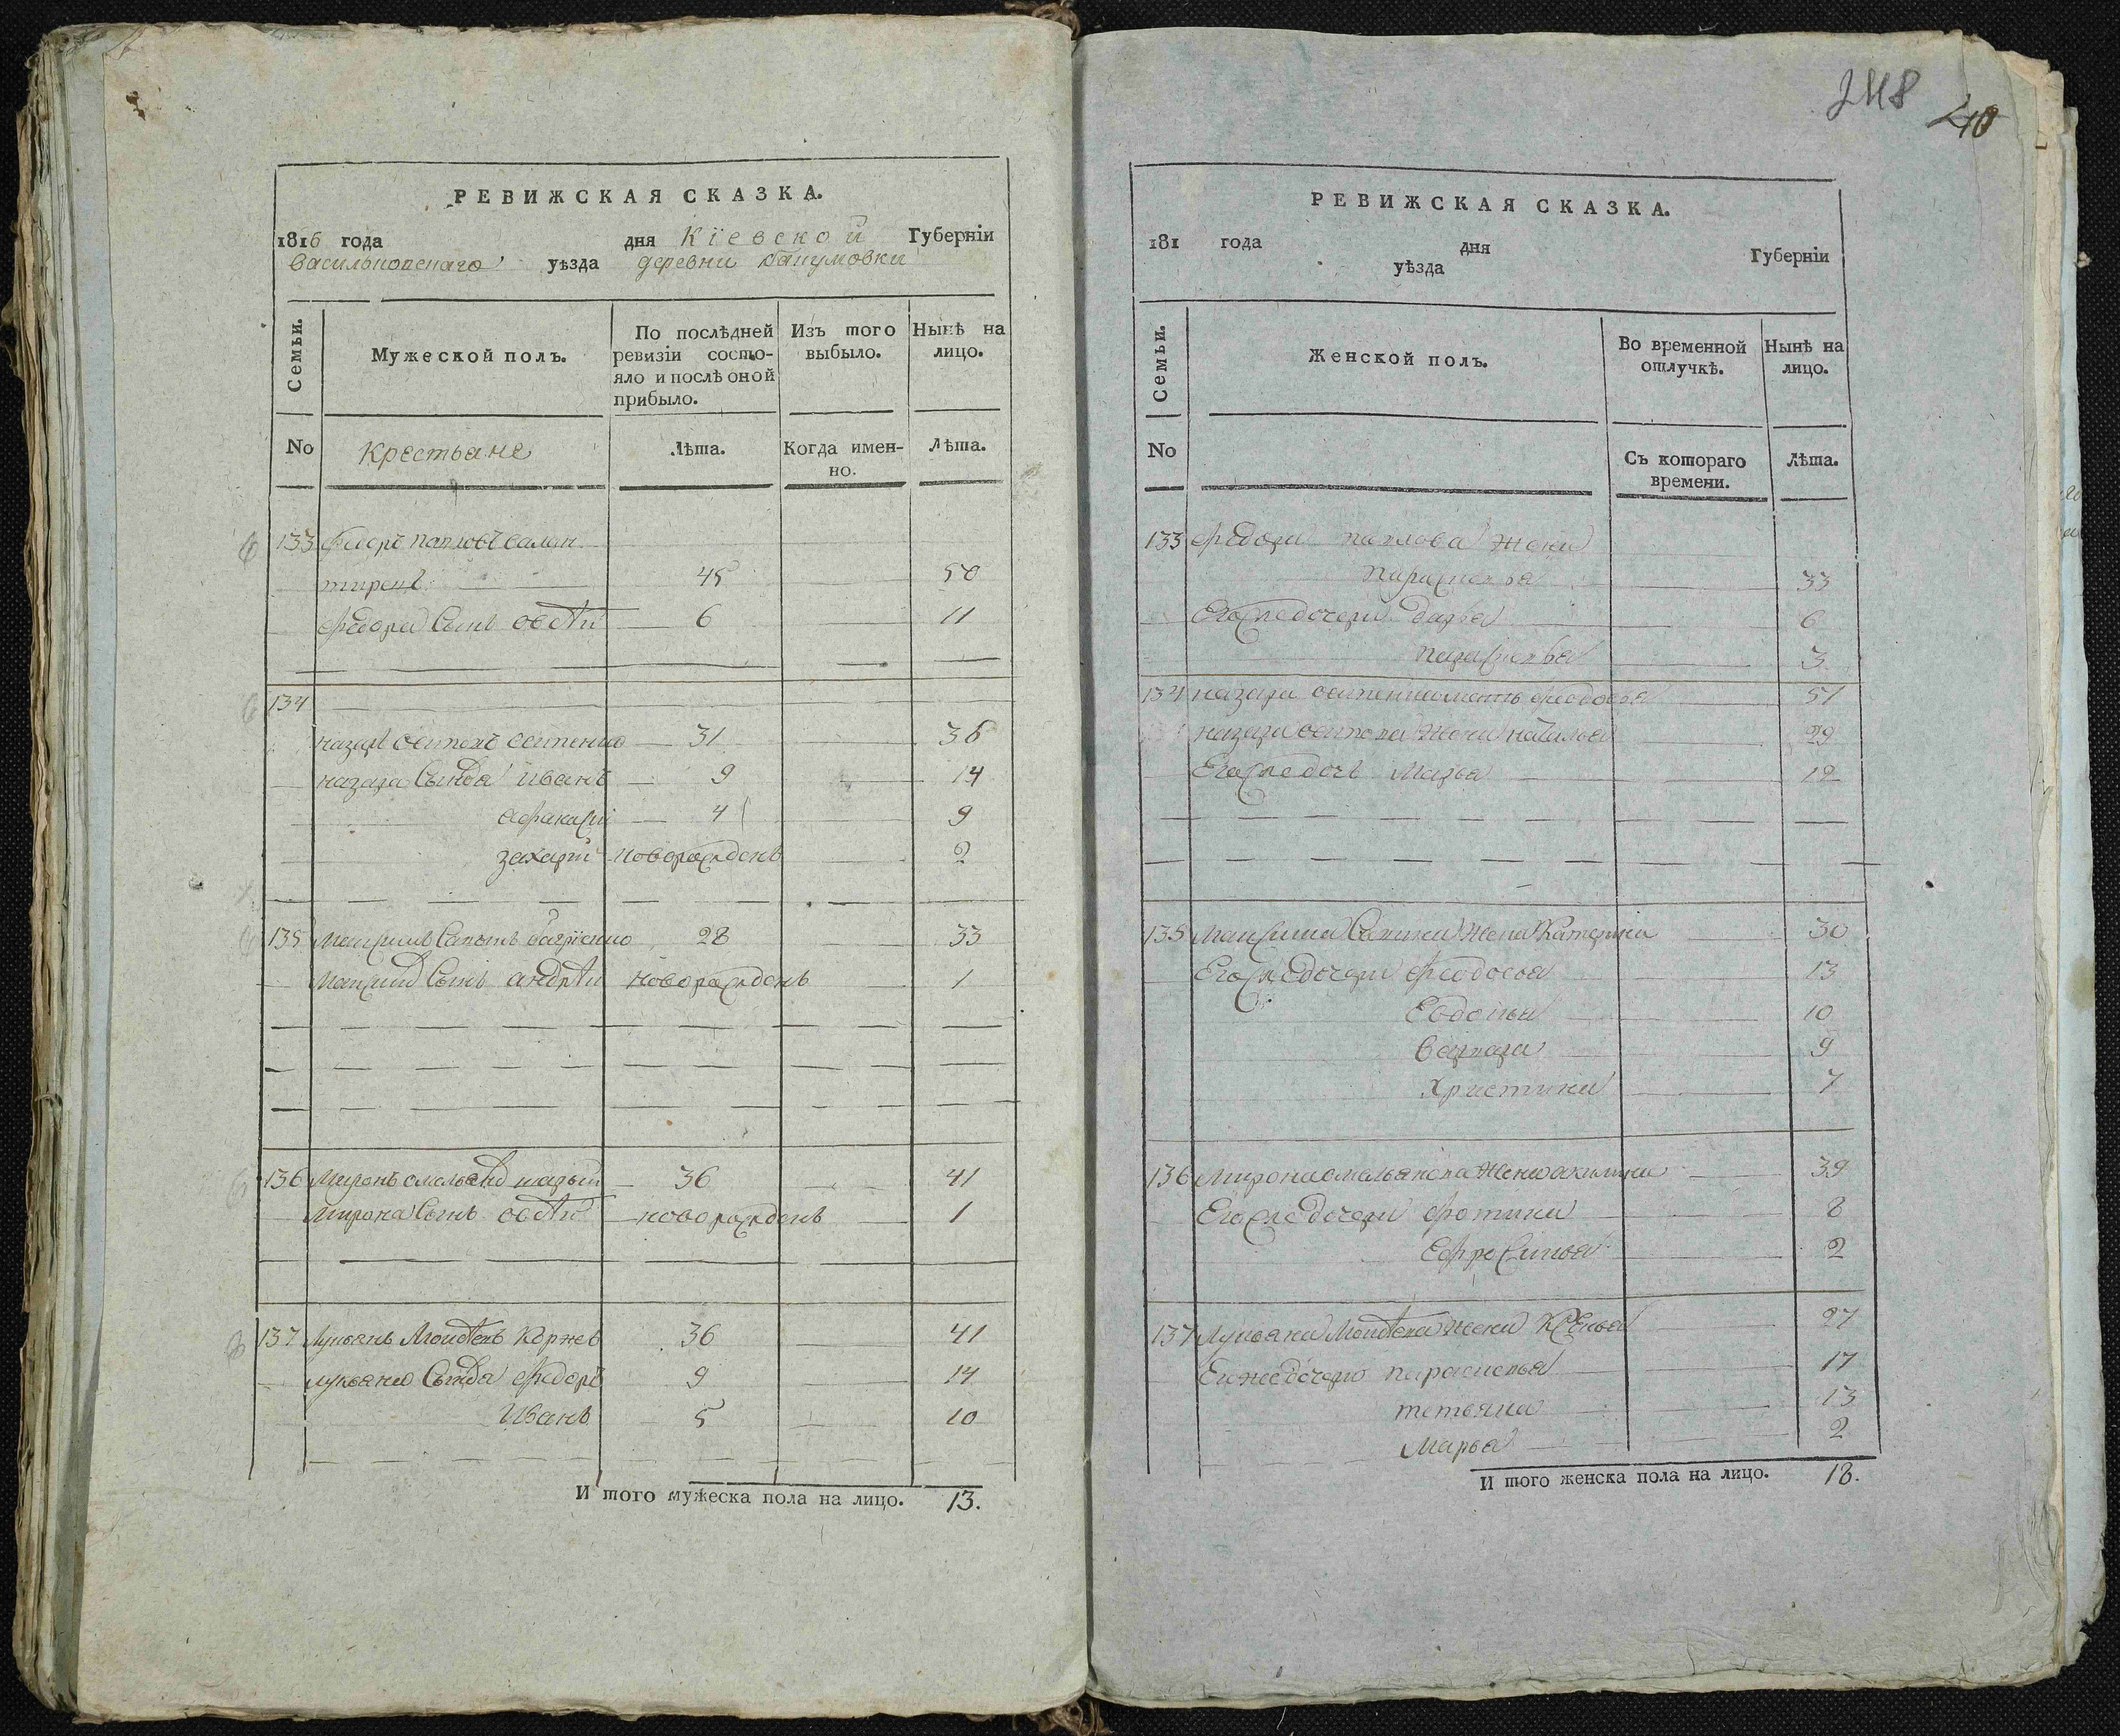 РЕВИЖСКАЯ СКАЗКА.
1816 года дня Кіевской Губерніи
васильковскаго уѣзда деревни
Семьи.
Мужеской полъ.
По послѣдней ревизіи состояло и послѣ оной прибыло.
Изъ того выбыло.
Нынѣ на лицо.
No
Крестьяне
Лѣта.
Когда именно.
Лѣта.
133 Федоръ павловъ салан
тиренко 45 50
Федора Сынъ овсѣй 6 11
134
назаръ осиповъ осипенко 31 36
назара Сыновья иванъ 9 14
афанасій 4 9
захарій новорожденъ 2
135 Максимъ Савинъ 28 33
Максима Сынъ андрѣй новорожденъ 1
136 Миронъ 36 41
Мирона Сынъ овсѣй новорожденъ 1
137 Лукьянъ Моисѣевъ Коржев 36 41
лукьяна Сыновья федоръ 9 14
Иванъ 5 10
И того мужеска пола на лицо. 13.
248 40
РЕВИЖСКАЯ СКАЗКА.
181 года дня Губерніи
уѣзда
Семьи.
Женской полъ.
Во временной отлучкѣ.
Нынѣ на лицо.
No
Съ котораго времени.
Лѣта.
133 Федора павлова жена
параскевья 33
Его же дочери дарья 6
параскевья 3
134 назара осипенка мать феодосья 51
назара осипова жена наталья 29
Его же дочь Марья 12
135 Максима Савина жена Катерина 30
Его же дочери феодосья 13
Евдокія 10
варвара 9
Христина 7
136 Мирона емельянова жена акилина 39
Его же дочери фотина 8
Ефросинья 2
137 Лукьяна Моисѣева жена Ксенья 27
Его же дочери параскевья 17
татьяна 13
Марья 2
И того женска пола на лицо. 18.